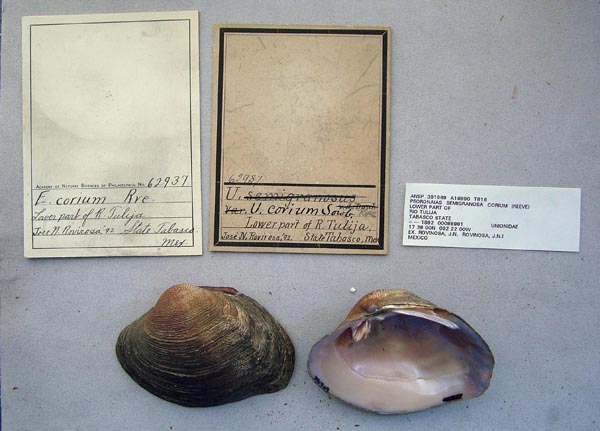 ACADEMY OF NATURAL SCIENCES OF PHILADELPHIA NO. 62937
E. corium Rve.
Lower part of R. Tulija
José N. Rovirosa, '92 State Tabasco
Mex
62937
U. semigranosus
var. U. corium Sowb.
Lower part of R. Tulija.
José N. Rovirosa, '92. State Tabasco, Mex
ANSP 391940 A10890 T816
PSORONAIAS SEMIGRANOSA CORIUM (REEVE)
LOWER PART OF
RIO TULIJA
TABASCO STATE
-- -- 1892 00089981 UNIONIDAE
17 38 00N 092 22 00W
EX. ROVINOSA, J.N. ROVINOSA, J.N.J
MEXICO